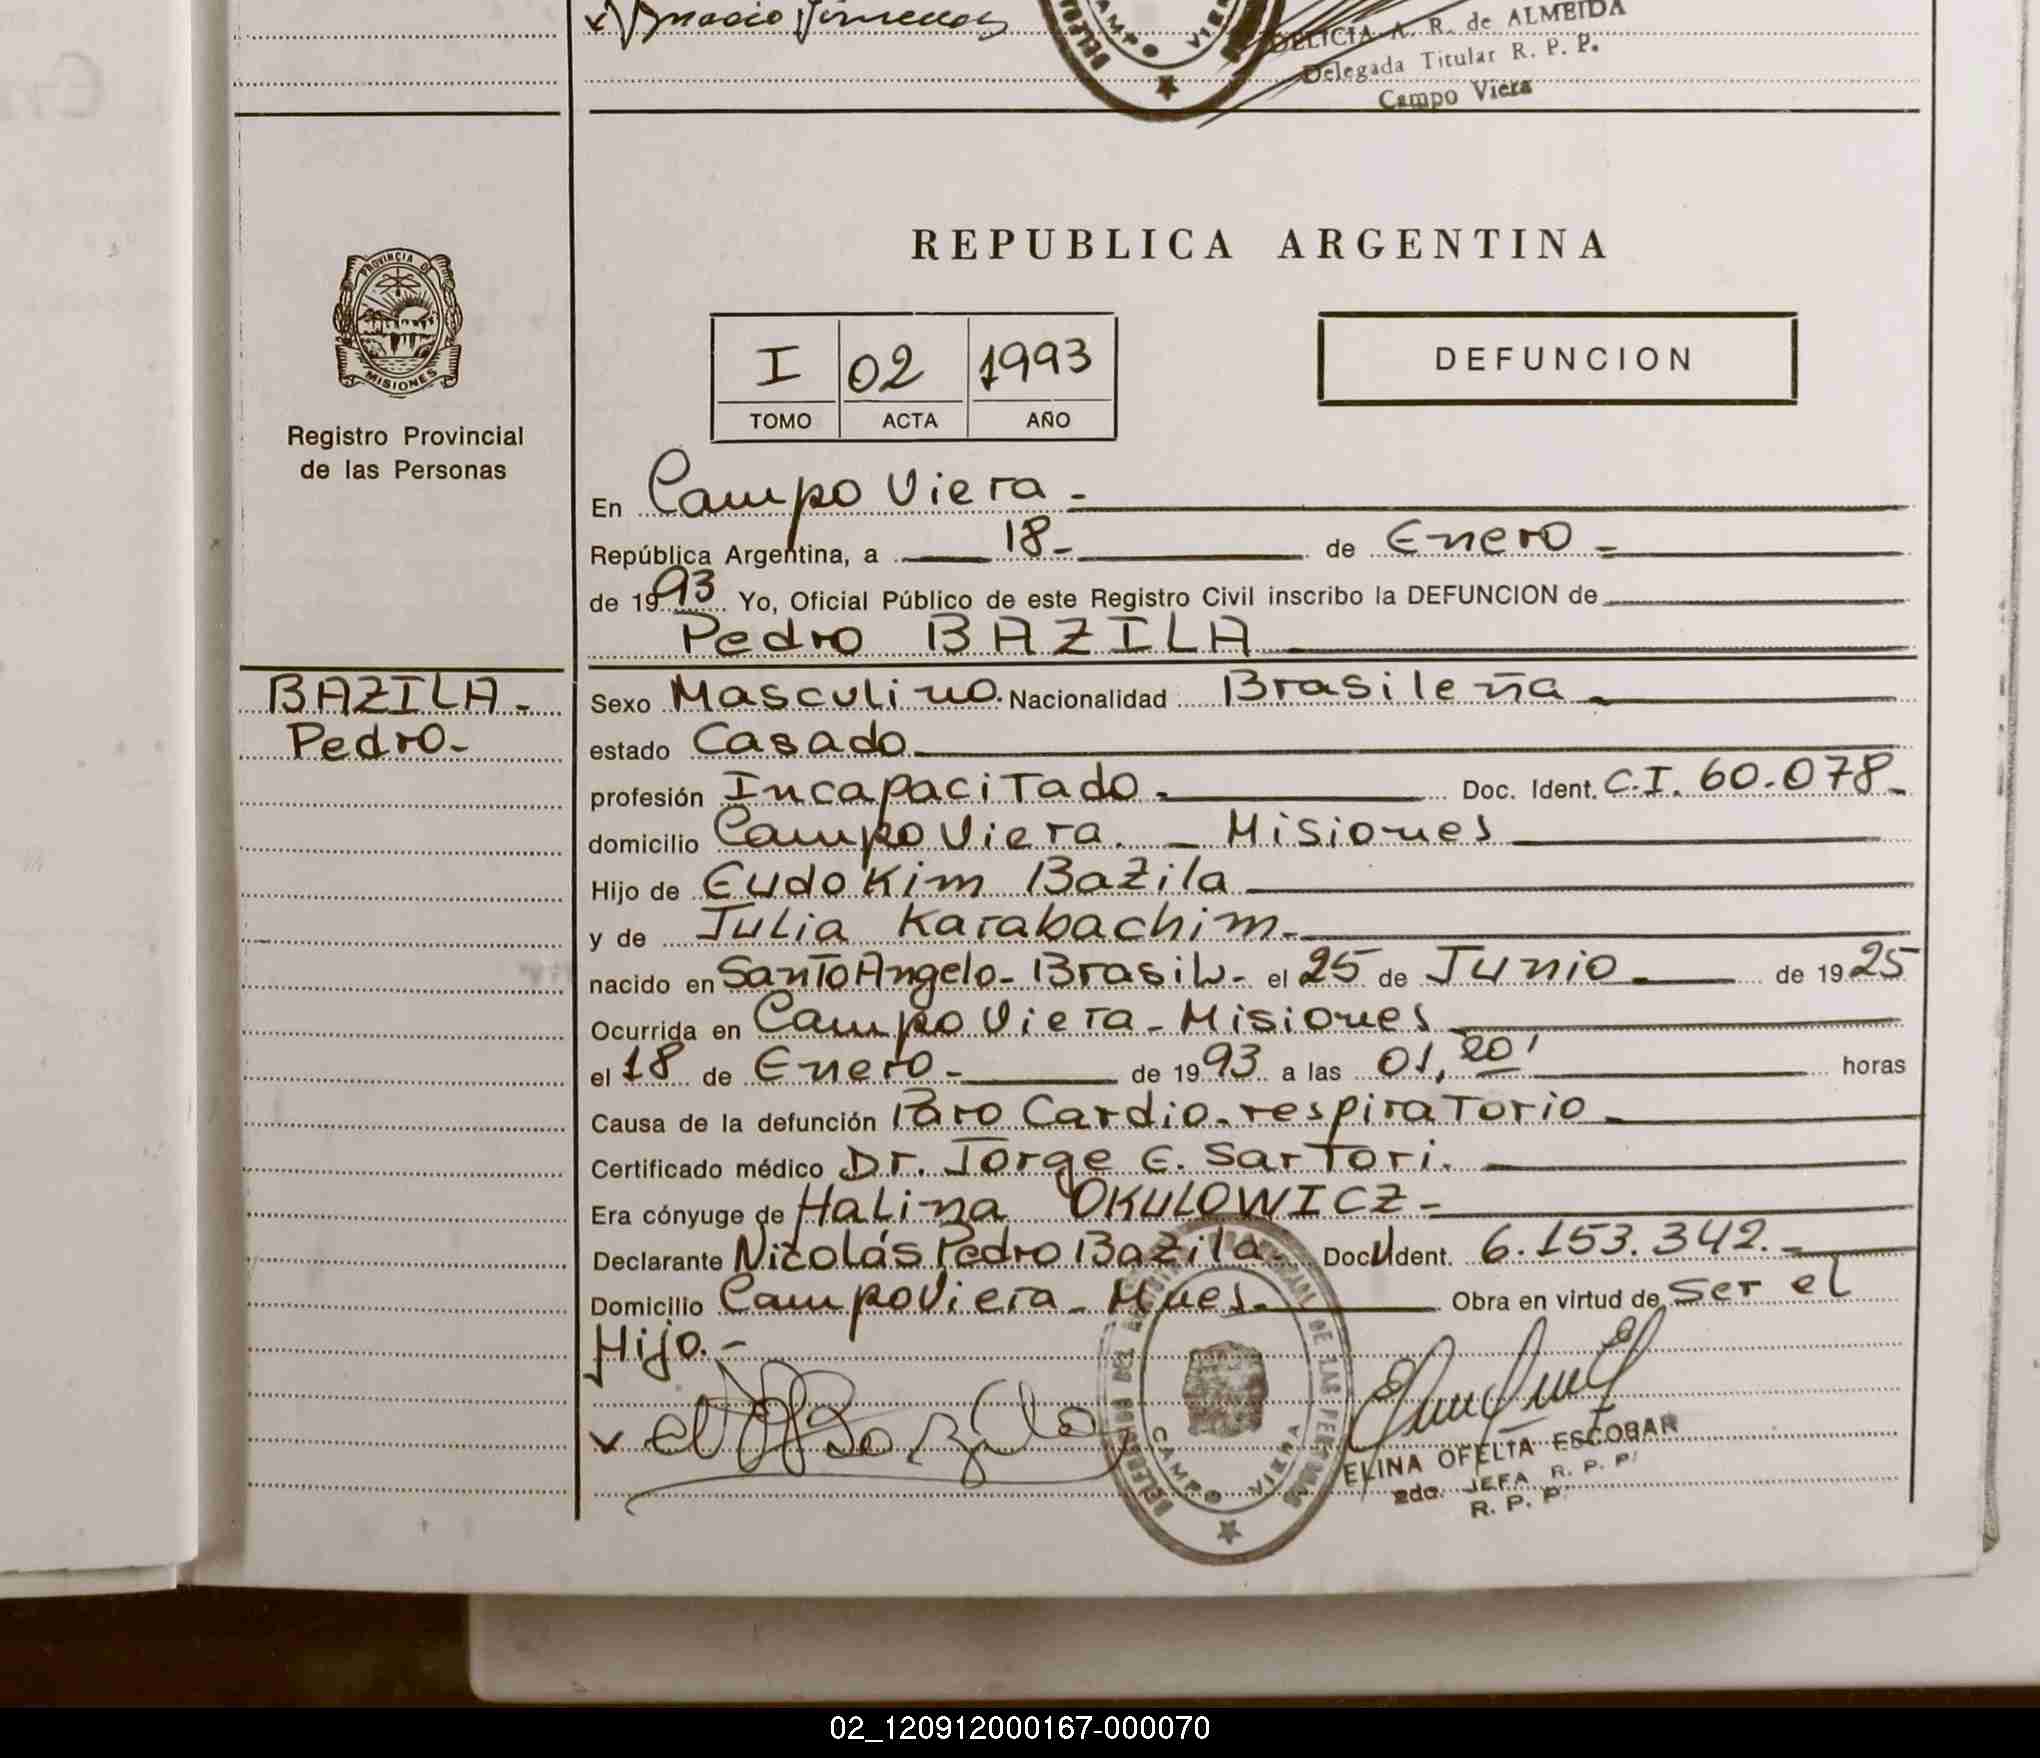 DELICIA A. R. de ALMEIDA
Delegada Titular R. P. P.
Campo Viera
CAMPO VIERA
REPUBLICA ARGENTINA
PROVINCIA DE
MISIONES
I 02 1993
TOMO ACTA AÑO
DEFUNCION
Registro Provincial
de las Personas
En Campo Viera -
República Argentina, a 18- de Enero -
de 1993 Yo, Oficial Público de este Registro Civil inscribo la DEFUNCION de
Pedro BAZILA
BAZILA -
Pedro -
Sexo Masculino. Nacionalidad Brasileña -
estado Casado
profesión Incapacitado - Doc. Ident. C.I. 60.078 -
domicilio Campo Viera. - Misiones
Hijo de Eudokim Bazila
y de Julia Karabachim -
nacido en Santo Angelo - Brasil - el 25 de Junio - de 1925
Ocurrida en Campo Viera - Misiones
el 18 de Enero - de 1993 a las 01,20' horas
Causa de la defunción Paro Cardio-respiratorio -
Certificado médico Dr. Jorge E. Sartori.
Era cónyuge de Halina OKULOWICZ -
Declarante Nicolás Pedro Bazila Doc. Ident. 6.153.342. -
Domicilio Campo Viera - Mnes. Obra en virtud de ser el
Hijo. -
DE LAS PERSONAS
CAMPO VIERA
ELINA OFELIA ESCOBAR
2do. JEFA R. P. P.
R. P. P.
02_120912000167-000070